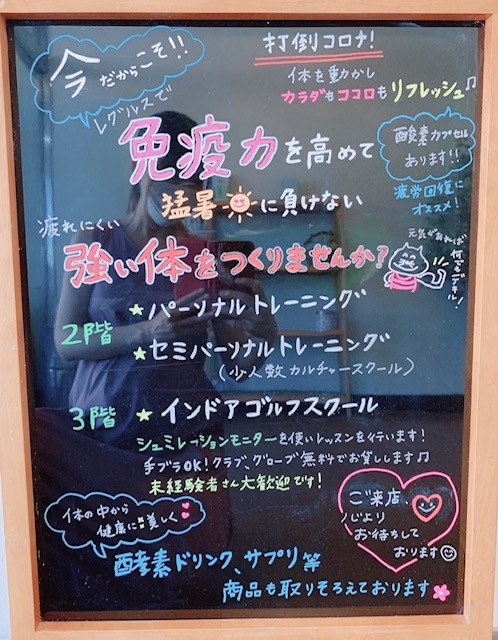 今だからこそ!!
打倒コロナ!
レグルスで
体を動かし
カラダもココロもリフレッシュ♪
免疫力を高めて
酸素カプセル
あります!!
猛暑に負けない
疲労回復に
オススメ!
疲れにくい
強い体をつくりませんか?
元気があれば
何でもデキル!
2階
★パーソナルトレーニング
★セミパーソナルトレーニング
(少人数カルチャースクール)
3階
★インドアゴルフスクール
シュミレーションモニターを使いレッスンを行います!
手ブラOK!クラブ、グローブ無料でお貸しします♫
未経験者さん大歓迎です!
体の中から
健康に美しく
ご来店、
心より
お待ちして
おります
酵素ドリンク、サプリ等
商品も取りそろえております